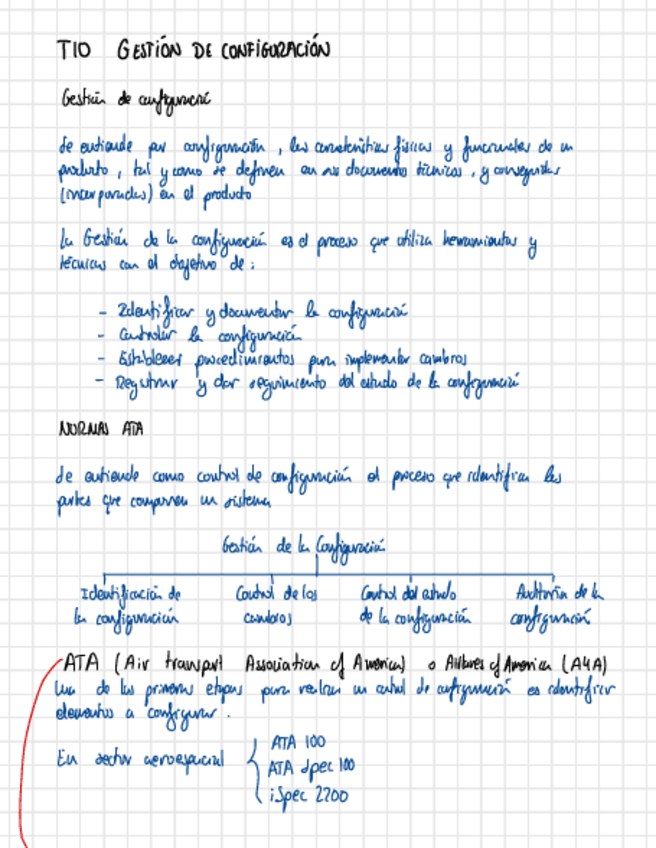 T10 GESTIÓN DE CONFIGURACIÓN
Gestión de configuració
Se entiende por configuración, las características físicas y funcionales de un
producto, tal y como se definen en sus documentos técnicos, y conseguidas
(incorporadas) en el producto
La Gestión de la configuración es el proceso que utiliza herramientas y
técnicas con el objetivo de:
- Identificar y documentar la configuración
- Controlar la configuración
- Establecer procedimientos para implementar cambios
- Registrar y dar seguimiento del estado de la configuración
NORMAS ATA
Se entiende como control de configuración el proceso que identifica las
partes que componen un sistema
Gestión de la Configuración
Identificación de Control de los Control del estado Auditoría de la
la configuración cambios de la configuración configuración
ATA (Air transport Association of America) o Airlines of America (A4A)
Una de las primeras etapas para realizar un control de configuración es identificar
elementos a configurar.
En sector aeroespacial
ATA 100
ATA Spec 100
iSpec 2200